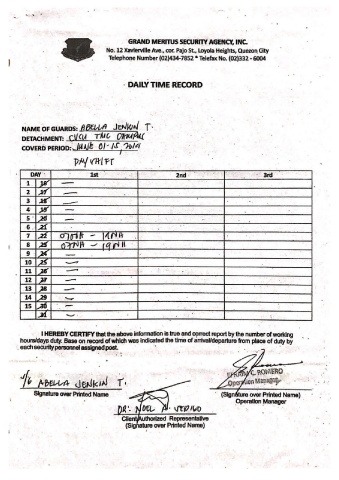 GRAND MERITUS SECURITY AGENCY, INC.
No. 12 Xavierville Ave., cor. Pajo St., Loyola Heights, Quezon City
Telephone Number (02)434-7852 * Telefax No. (02)332 - 6004
DAILY TIME RECORD
NAME OF GUARDS: ABELLA JENKIN T.
DETACHMENT: CVCU TMC CAMPUS
COVERD PERIOD: JUNE 01-15,
DAY SHIFT
DAY 1st 2nd 3rd
1 16 —
2 17 —
3 18 —
4 19 —
5 20 —
6 21 —
7 22 07NH - 19NH
8 23 07NH - 19NH
9 24 —
10 25 —
11 26 —
12 27 —
13 28 —
14 29 —
15 30 —
31 —
I HEREBY CERTIFY that the above information is true and correct report by the number of working
hours/days duty. Base on record of which was indicated the time of arrival/departure from place of duty by
each security personnel assigned post.
ABELLA JENKIN T.
Signature over Printed Name
C. ROMERO
Operation Manager
(Signature over Printed Name)
Operation Manager
DR. NOEL
Client/Authorized Representative
(Signature over Printed Name)